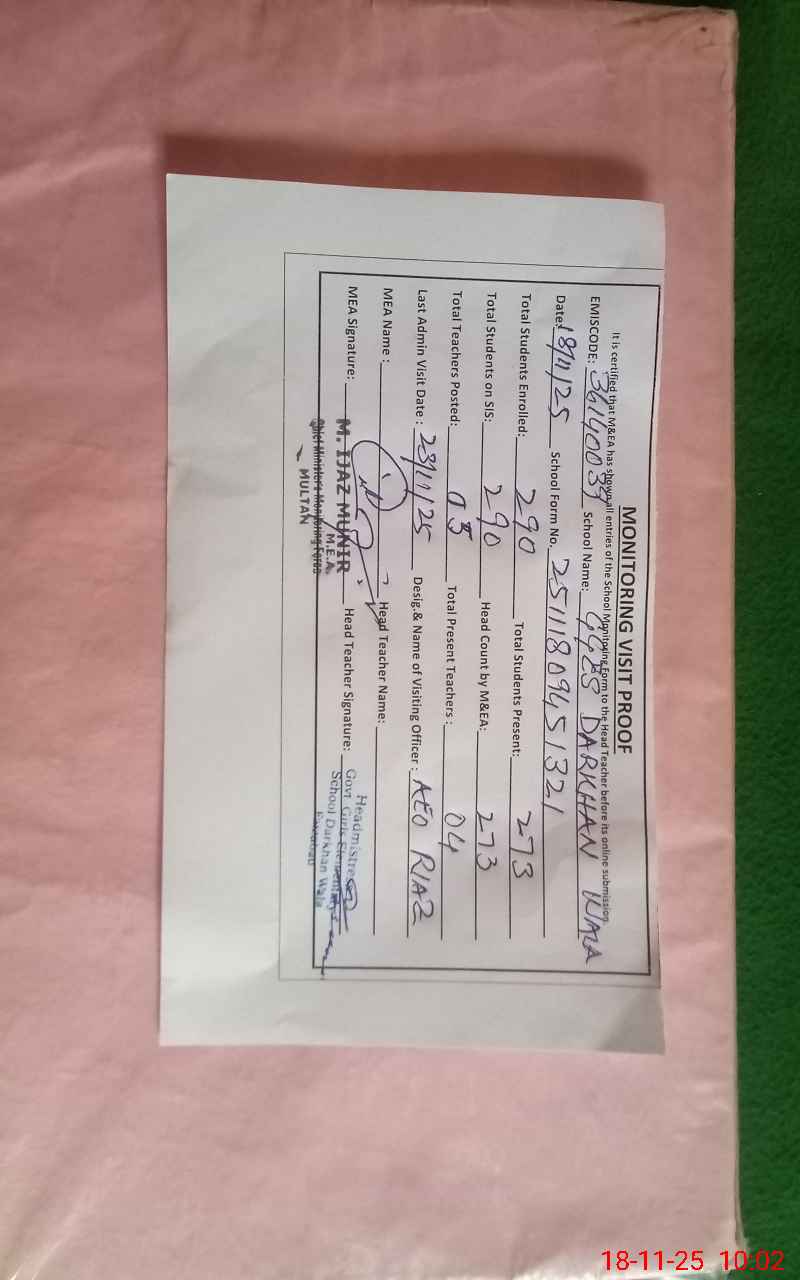 MONITORING VISIT PROOF
It is certified that M&EA has shown all entries of the School Monitoring Form to the Head Teacher before its online submission.
EMISCODE: 36140039 School Name: GGES DARKHAN WALA
Date: 18/11/25 School Form No. 25111809451321
Total Students Enrolled: 290 Total Students Present: 273
Total Students on SIS: 290 Head Count by M&EA: 273
Total Teachers Posted: 05 Total Present Teachers: 04
Last Admin Visit Date: 23/11/25 Desig.& Name of Visiting Officer: AEO RIAZ
MEA Name: Head Teacher Name:
MEA Signature: Head Teacher Signature:
M. IJAZ MUNIR
M.E.A.
Chief Minister's Monitoring Force
MULTAN
Headmistress
Govt Girls Elementary
School Darkhan Wala
18-11-25 10:02